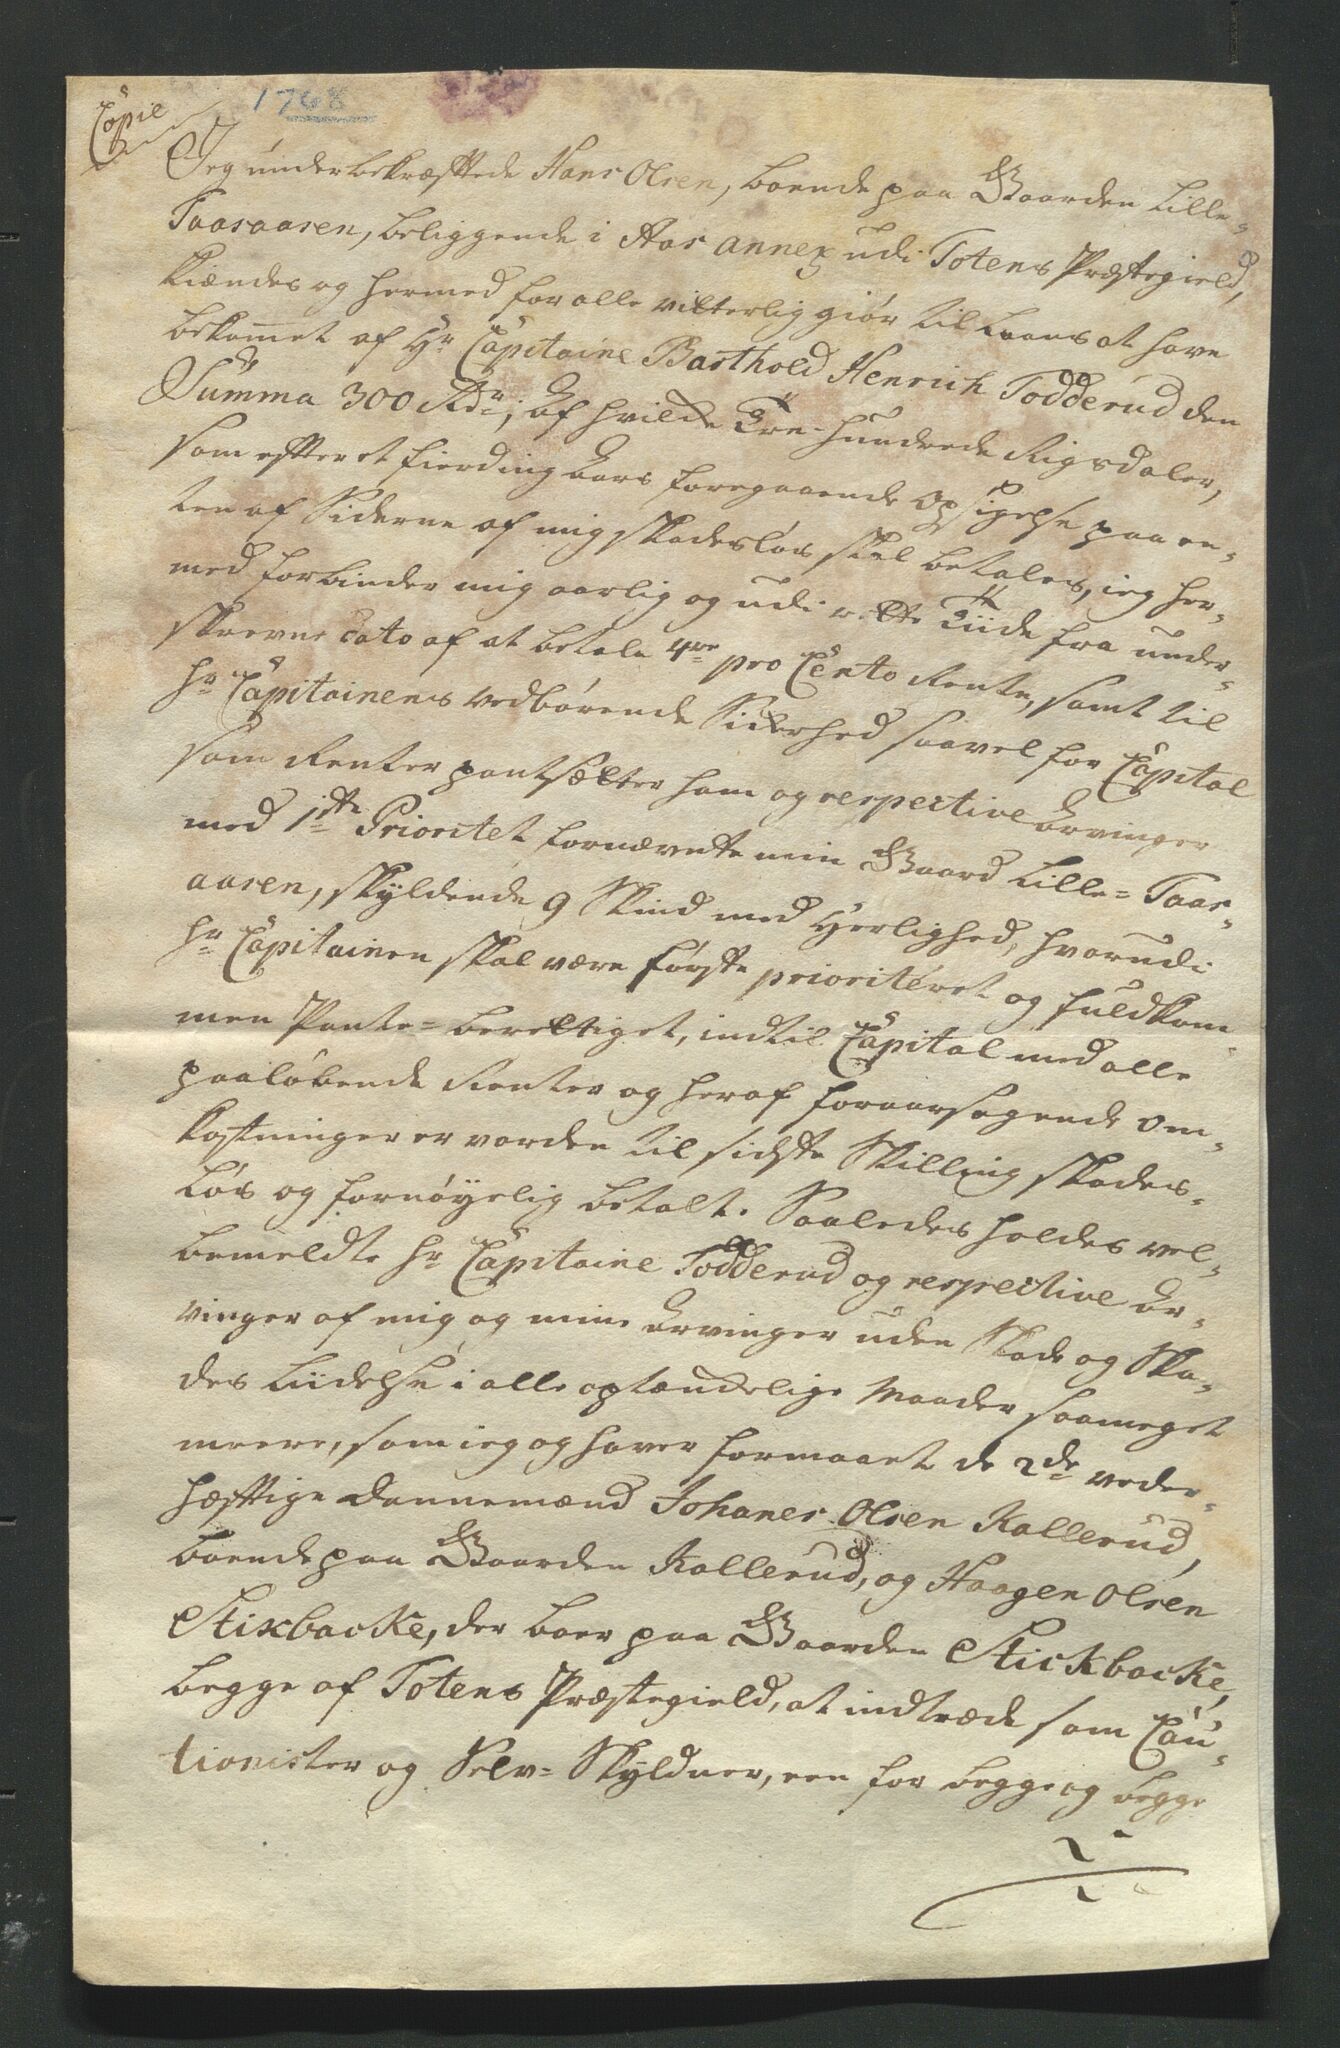 Copie
1768
Jeg underbekræftede Hans Olsen, boende paa Gaarden Lille-
Taasaasen, beliggende i Aas annex udi Totens Præstegield,
kiændes og hermed for alle vitterlig giør til Laans at have
bekommet af Hr Capitaine Barthold Henrich Todderud den
Summa 300 Rdr; af hvilde Tre-hundrede Rigsdaler,
som efter et fierding Aars foregaaende Opsigelse paa en-
ten af Siderne af mig skadesløs skal betales, ieg her-
med forbinder mig aarlig og udi rette Tiide fra under-
skrevne dato af at betale 4re pro Cento Rente, samt til
hr Capitainens vedbørende Sikerhed saavel for Capital
som Renter pantsætter ham og respective Arvinger
med 1ste Prioritet fornævnte min Gaard Lille-Taas-
aasen, skyldende 9 Skind med Herlighed, hvorudi
hr Capitainen skal være første prioriteret og fuldkom-
men Pante-berettiget, indtil Capital med alle
paaløbende Renter og heraf foraarsagende Om-
kostninger er vorden til sidste Skilling skades-
løs og fornøyelig betalt. Saaledes holdes vel-
bemeldte hr Capitaine Todderud og respective Ar-
vinger af mig og mine Arvinger uden Skade og Ska-
des Liidelse i alle optænkelige Maader saameget
meere, som ieg og haver formaaet de 2de veder-
hæftige Dannemænd Johanes Olsen Kallerud,
boende paa Gaarden Kallerud, og Haagen Olsen
Stixbacke, der boer paa Gaarden Stickbacke,
begge af Totens Præstegield, at indtræde som Cau-
tionister og Selv-Skyldner, een for begge og begge